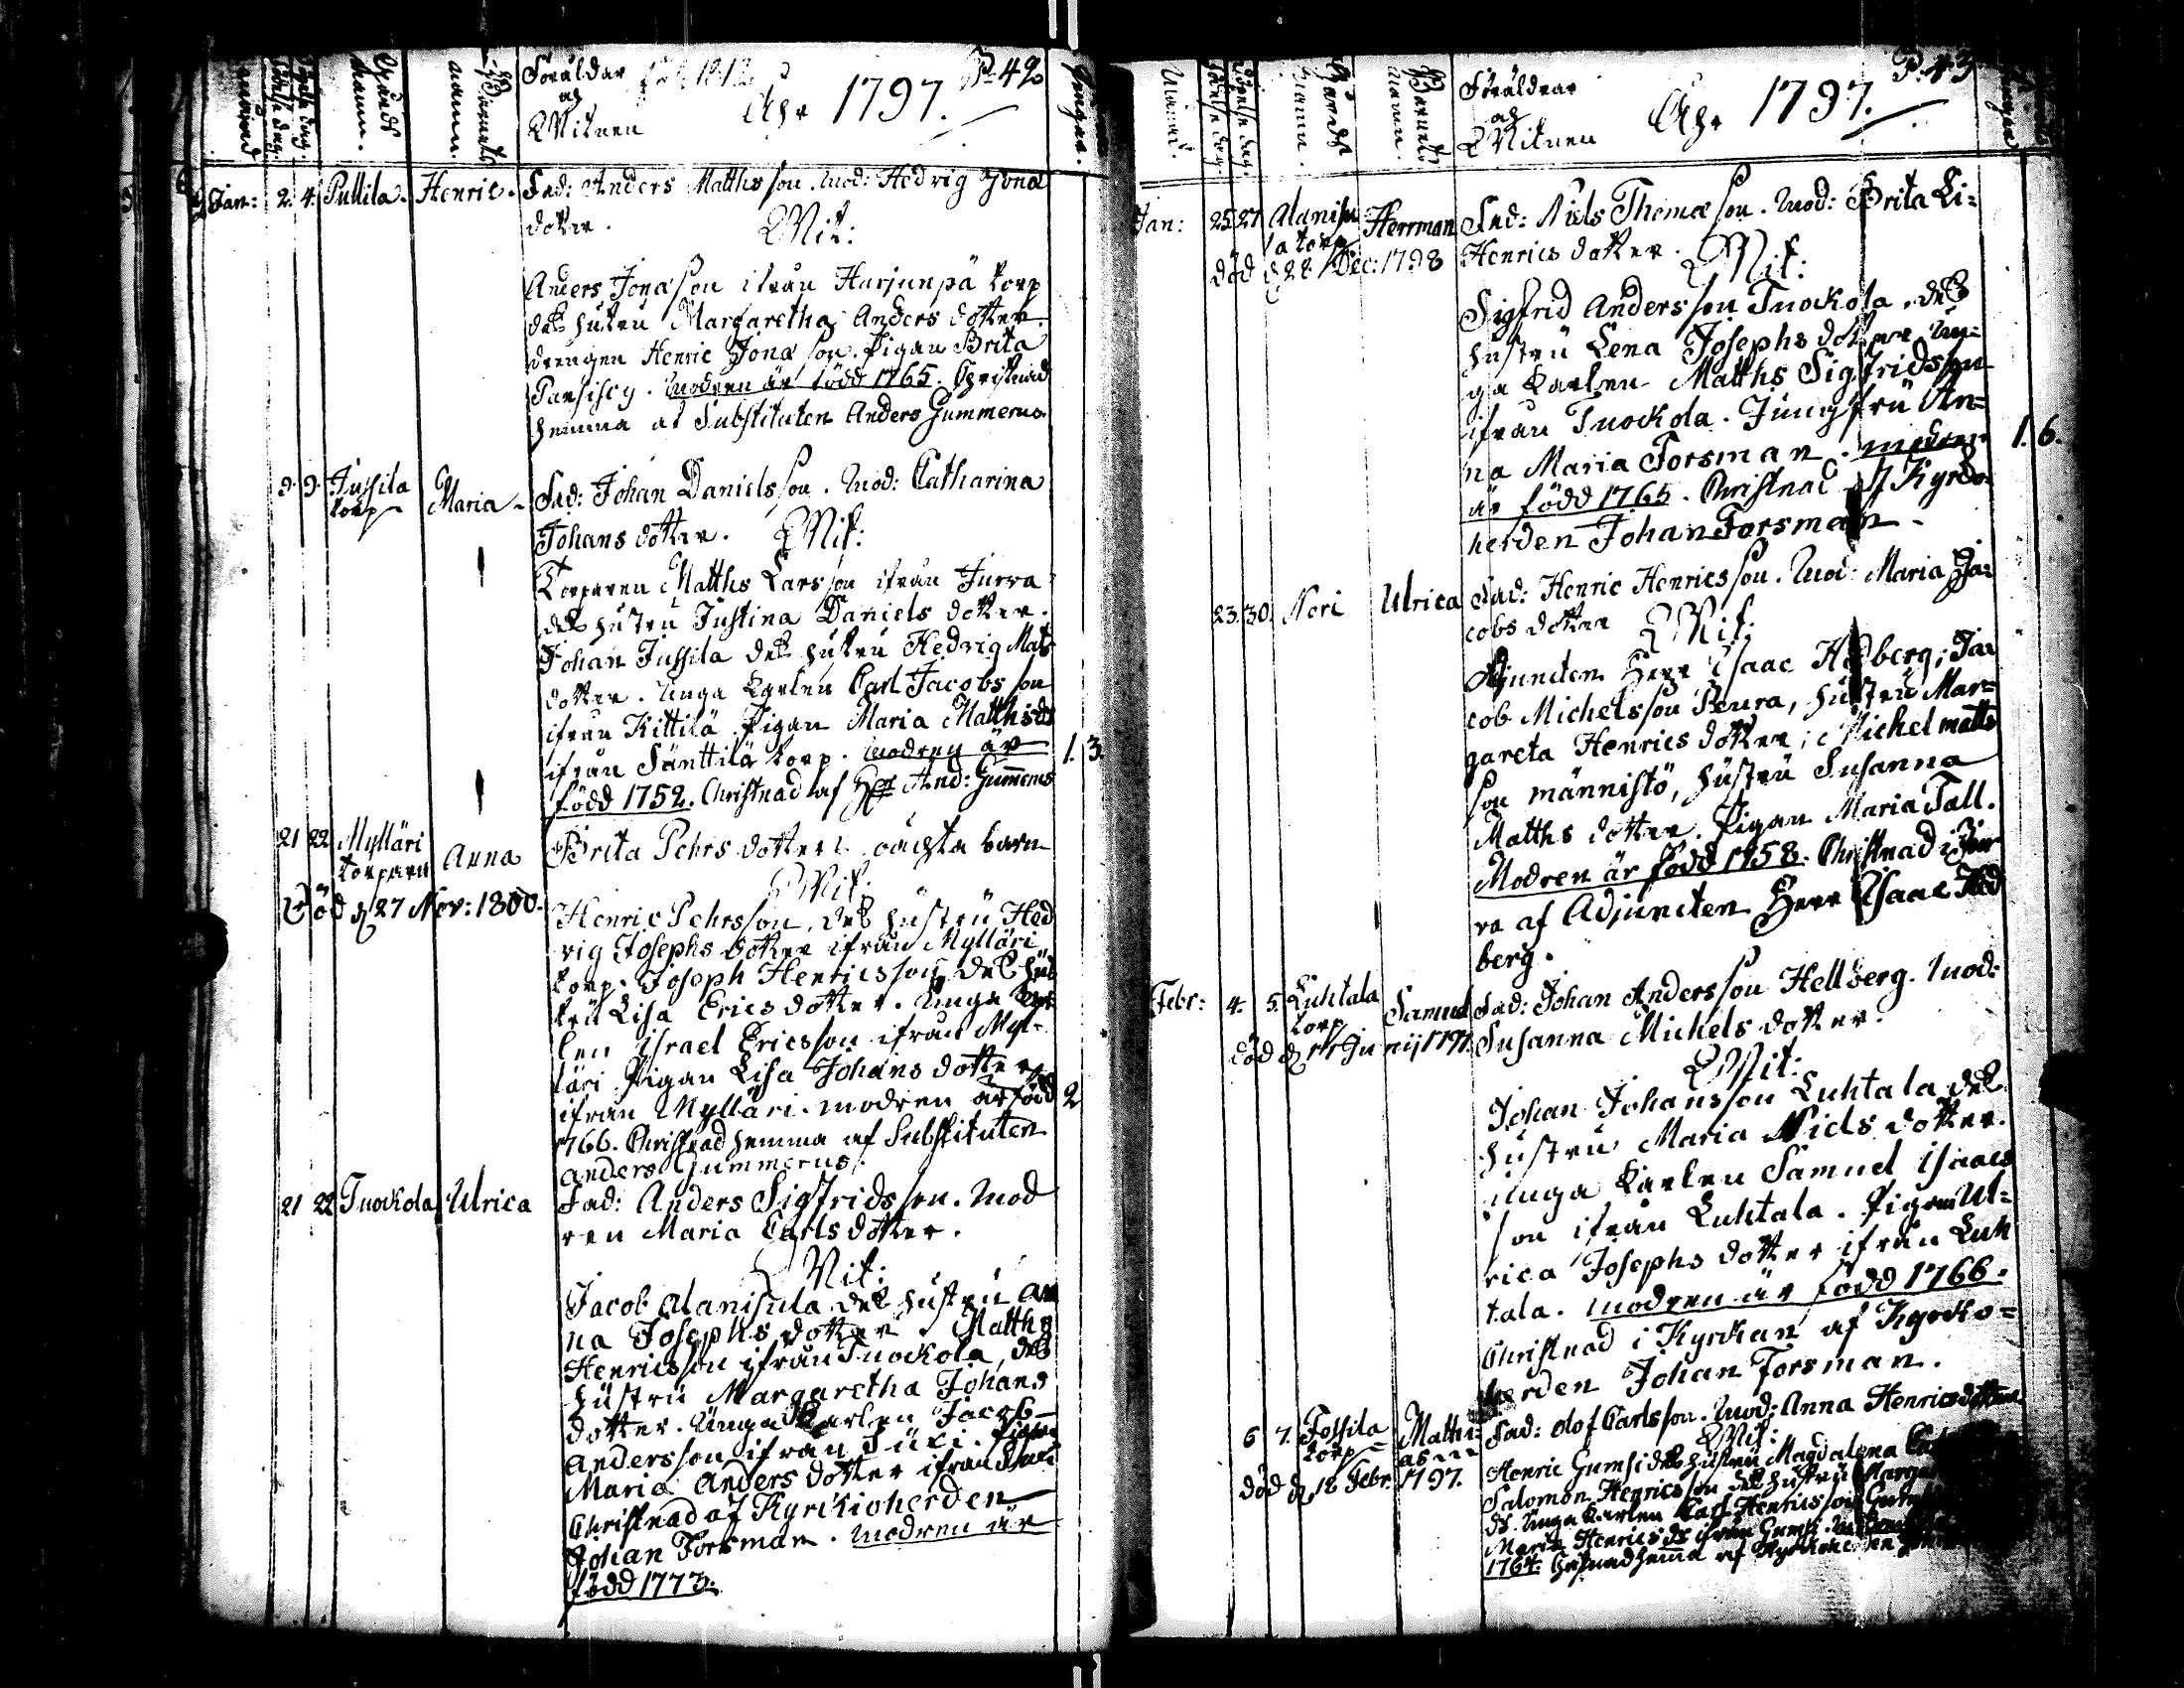 P. 42
Föräldar
och
Witnen
Åhr 1797.
Gårds namn.
Barnets namn.
Jan: 2. 4. Puttila. Henric. Fad: Anders Matthsson. Mod: Hedvig Jonæ
dotter.
Wit:
Anders Jonæson ifrån Harjunpä torp
dess hustru Margaretha Anders dotter.
drengen Henric Jonæson. Pigan Brita
modren är född 1765. Christnad
hemma af Substituten Anders Gummerus.
9. 9. Jussila torp Maria. Fad: Johan Danielsson. Mod: Catharina
Johans dotter. Wit:
Torparen Matths Larsson ifrån Jurva
dess hustru Justina Daniels dotter.
Johan Jussila dess hustru Hedvig Mats
dotter. Unga Karlen Carl Jacobsson
ifrån Kittilä Pigan Maria Matthsds
ifrån Sänttilä torp. modren är 1. 3.
född 1752. Christnad af Herr And: Gummerus
21 22 Mylläri torparn Anna Brita Pehrs dotter oächta barn
Död d 27 Nov: 1800.
Wit:
Henric Pehrsson, dess hustru Hed
vig Josephs dotter ifrån Mylläri
torp. Joseph Henricsson dess hus
tru Lisa Erics dotter. Unga Kar
len Israel Ericsson ifrån Myl-
läri Pigan Lisa Johans dotter
ifrån Mylläri. modren är född 2
1766. Christnad hemma af Substituten
Anders Gummerus.
21 22 Tuockola Ulrica Fad: Anders Sigfridsson. Mod
ren Maria Carls dotter.
Wit:
Jacob Alanisula dess hustru An
na Josephs dotter. Matths
Henricsson ifrån Tuockola, dess
hustru Margaretha Johans
dotter. Unga Karlen Jacob
Andersson ifrån Süri. Pigan
Maria Anders dotter ifrån
Christnad af Kyrkioherden
Johan Forsman. modren är
född 1773.
P. 43
Föräldrar
och
Witnen
Åhr 1797.
Månad.
Gårds namn.
Barnets namn.
Jan: 25 27 Alanisu
la torp Herrman Fad: Niels Thomæson. Mod: Brita Li-
död d 22 Dec: 1798 Henrics dotter. Wit:
Sigfrid Andersson Tuockola, dess
hustru Lena Josephs dotter. Un-
ga Karlen Matths Sigfridsson
ifrån Tuockola. Jungfru An-
na Maria Forsman. modren 1. 6.
är född 1765. Christnad af Kyrko-
herden Johan Forsman.
23. 30. Neri Ulrica Fad: Henric Henricsson. Mod: Maria Ja-
cobs dotter Wit:
Adjuncten Herr Isaac Hedberg; Ja-
cob Michelsson Peura, hustru Mar-
gareta Henrics dotter; Michel matts
son männistö, hustru Susanna
Matths dotter. Pigan Maria Tall.
Modren är född 1758. Christnad i
ra af Adjuncten Herr Isaac Hed
berg.
Febr: 4. 5. Luhtala torp Samuel Fad: Johan Andersson Hellberg. Mod:
död d 11 Junij 1797. Susanna Michels dotter.
Wit:
Johan Johansson Luhtala dess
hustru Maria Niels dotter.
Unga Karlen Samuel Isaacs
son ifrån Luhtala. Pigan Ul-
rica Josephs dotter ifrån Luh
tala. modren är född 1766.
Christnad i Kyrckan af Kyrcko-
herden Johan Forsman.
6 7. Tossila torp Matthi-
as Fad: Olof Carlsson. Mod: Anna Henrics dotter
död d 12 Febr. 1797.
Wit:
Henric Gumsi dess hustru Magdalena
Salomon Henricsson dess hustru
ds. Unga Karlen Carl Henricsson
Maria Henrics ds ifrån Gumsi.
1764. Christnad hemma af